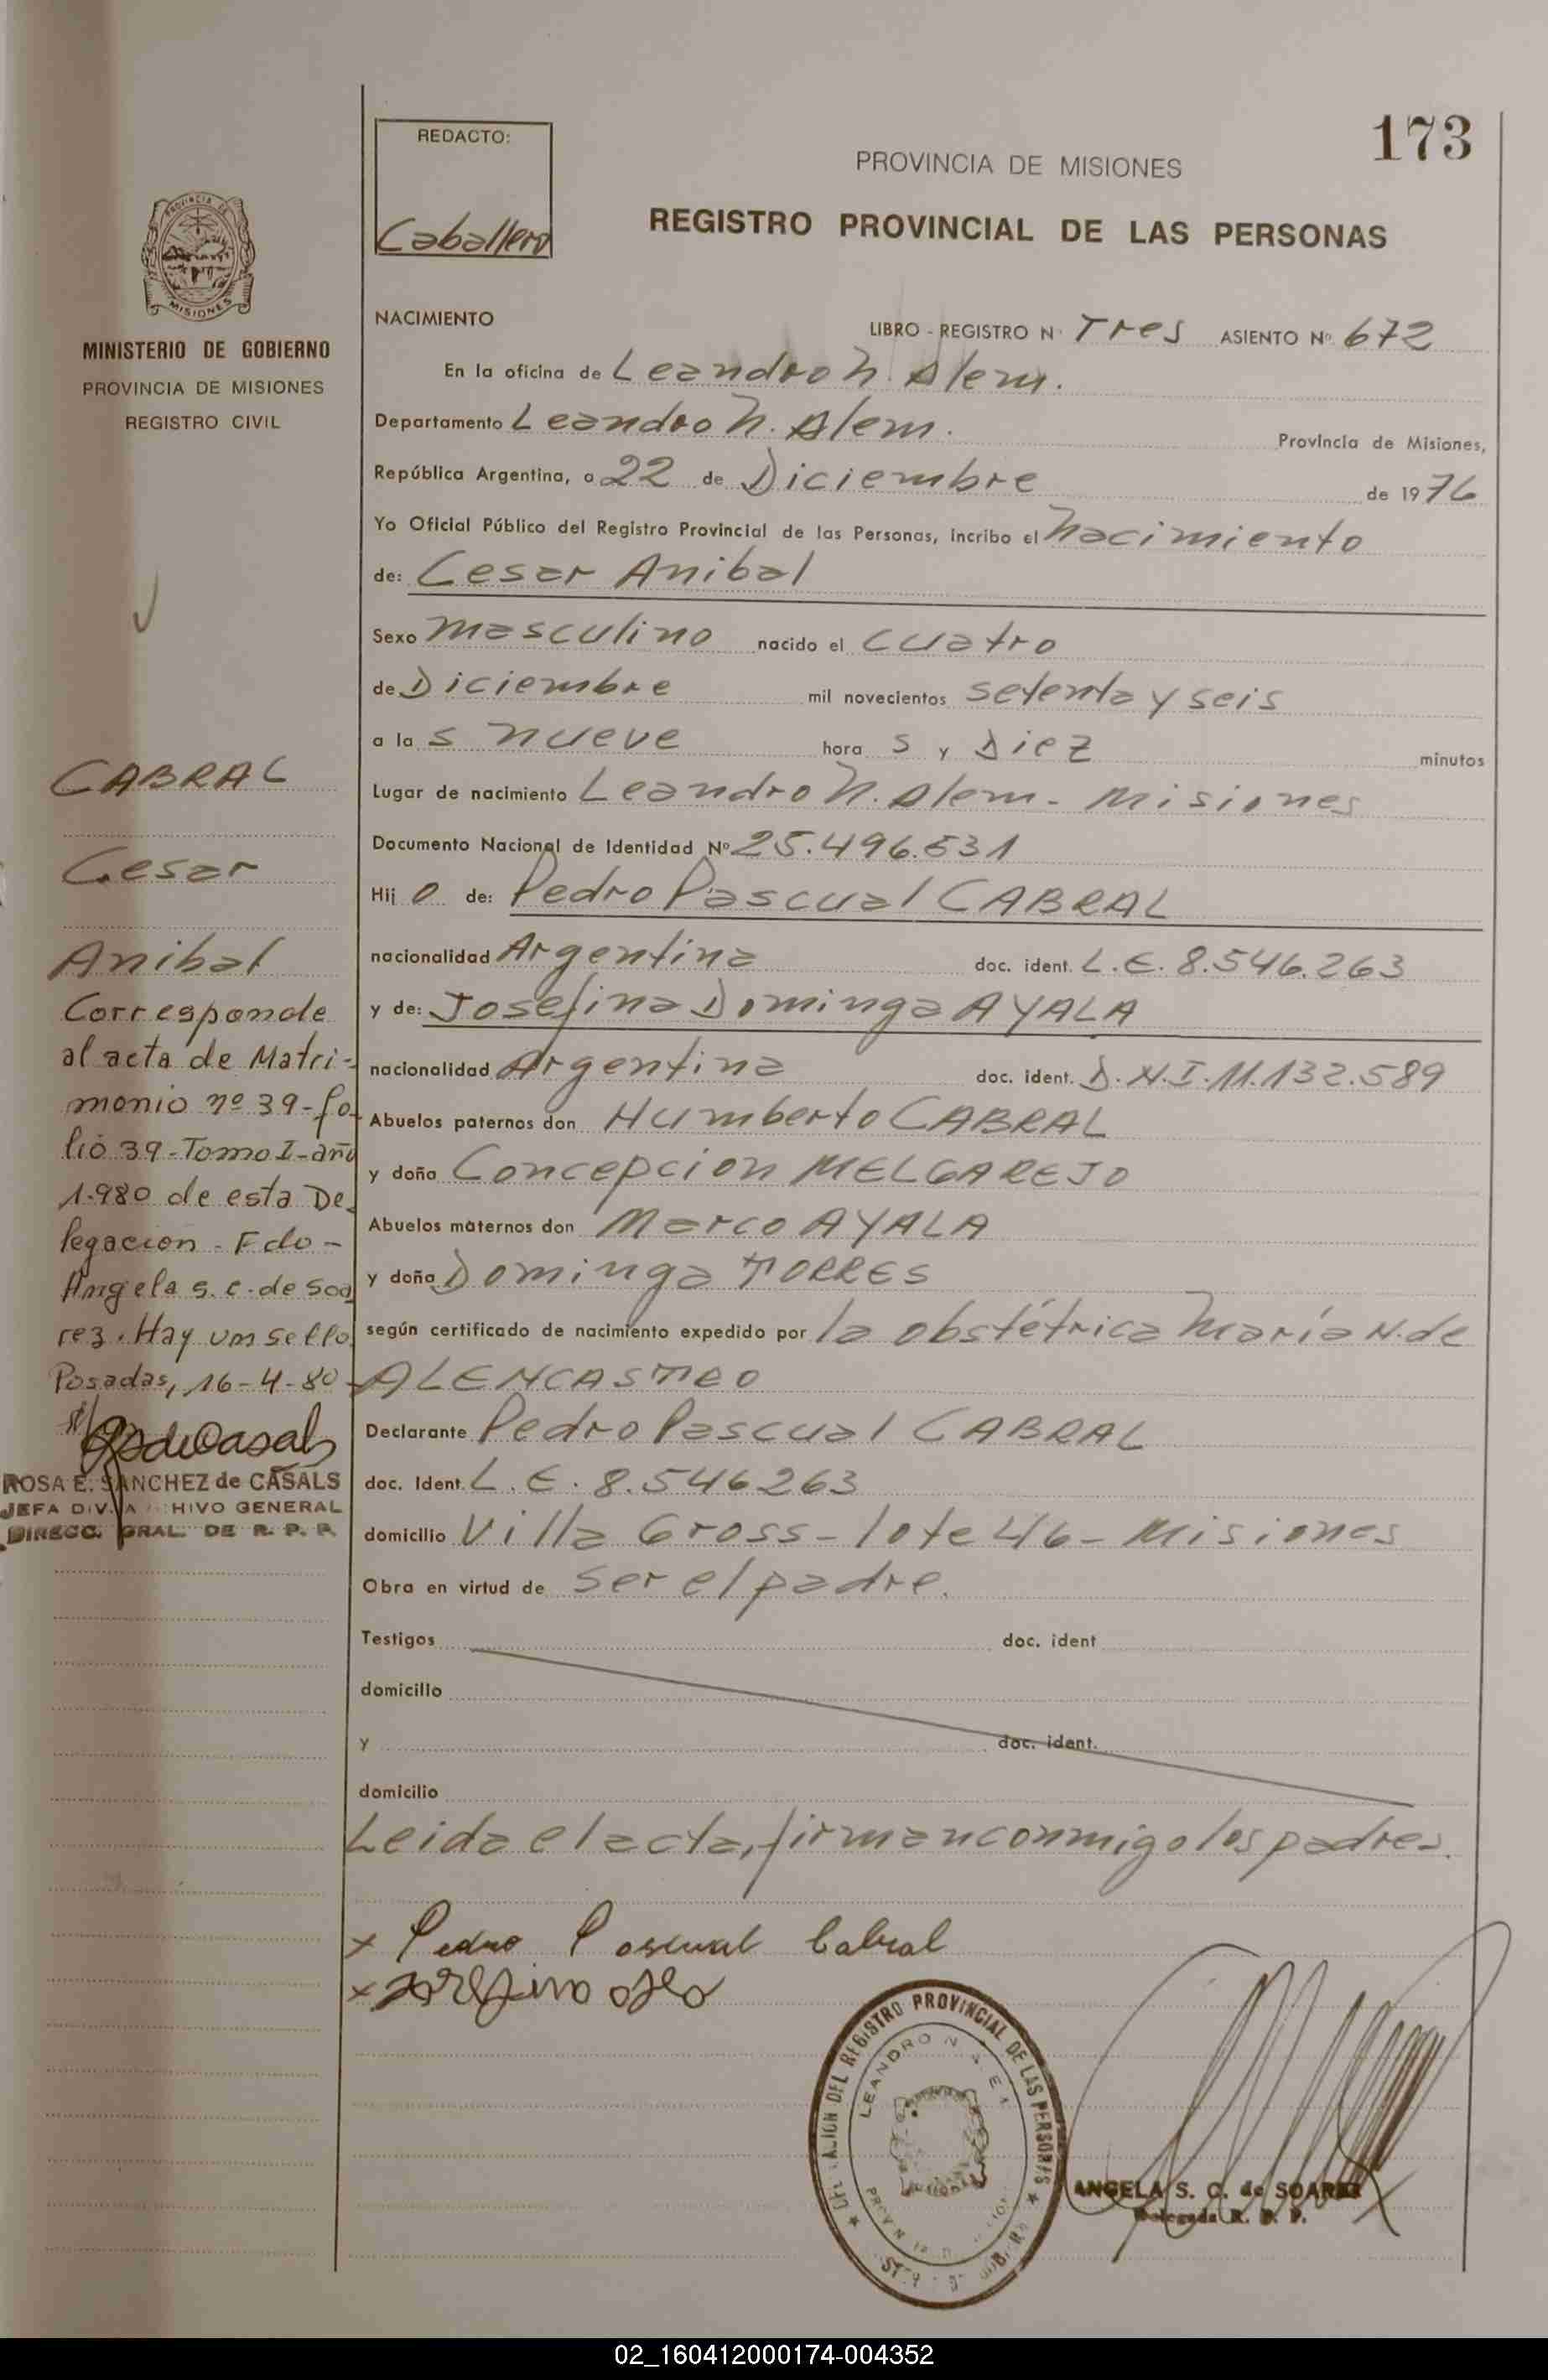 173
REDACTO:
Caballero
PROVINCIA DE MISIONES
REGISTRO PROVINCIAL DE LAS PERSONAS
PROVINCIA DE
MISIONES
MINISTERIO DE GOBIERNO
PROVINCIA DE MISIONES
REGISTRO CIVIL
NACIMIENTO
LIBRO - REGISTRO Nº Tres ASIENTO Nº 672
En la oficina de Leandro N. Alem.
Departamento Leandro N. Alem. Provincia de Misiones,
República Argentina, a 22 de Diciembre de 1976
Yo Oficial Público del Registro Provincial de las Personas, incribo el nacimiento
de: Cesar Anibal
Sexo masculino nacido el cuatro
de Diciembre mil novecientos setenta y seis
a la s nueve hora s y Diez minutos
Lugar de nacimiento Leandro N. Alem - Misiones
Documento Nacional de Identidad Nº 25.496.531
Hij o de: Pedro Pascual CABRAL
nacionalidad Argentina doc. ident. L.E. 8.546.263
y de: Josefina Dominga AYALA
nacionalidad Argentina doc. ident. D.N.I. 11.132.589
Abuelos paternos don Humberto CABRAL
y doña Concepcion MELGAREJO
Abuelos maternos don Marco AYALA
y doña Dominga TORRES
según certificado de nacimiento expedido por la obstétrica María N. de
ALENCASTRO
Declarante Pedro Pascual CABRAL
doc. Ident. L.E. 8.546263
domicilio Villa Gross - lote 46 - Misiones
Obra en virtud de ser el padre.
Testigos doc. ident
domicilio
y doc. ident.
domicilio
Leida el acta, firman conmigo los padres.
x Pedro Pascual Cabral
CABRAL
Cesar
Anibal
Corresponde
al acta de Matri-
monio nº 39 - fo-
lio 39 - Tomo I - año
1.980 de esta De-
legacion - Fdo -
Angela S. C. de Soa
rez. Hay un sello
Posadas, 16-4-80
ROSA E. SANCHEZ de CASALS
JEFA DIV. ARCHIVO GENERAL
DIRECC. GRAL. DE R. P. P.
DELEGACION DEL REGISTRO PROVINCIAL DE LAS PERSONAS
LEANDRO N. ALEM
ANGELA S. C. de SOAREZ
Delegada R. P. P.
02_160412000174-004352